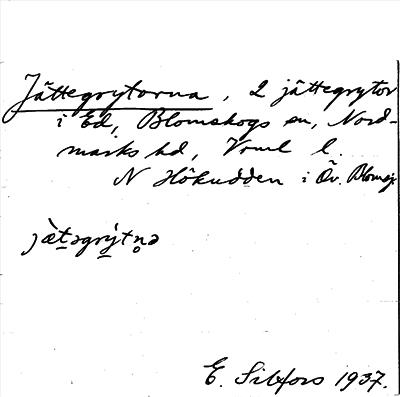 Jättegrytorna, 2 jättegrytor
i Ed, Blomskogs sn, Nord-
marks hd, Vrml l.
N Hökudden i Öv. Blomsj.
jæ̀t̲əgrý̲tn̥ə
E. Sibfors 1937.